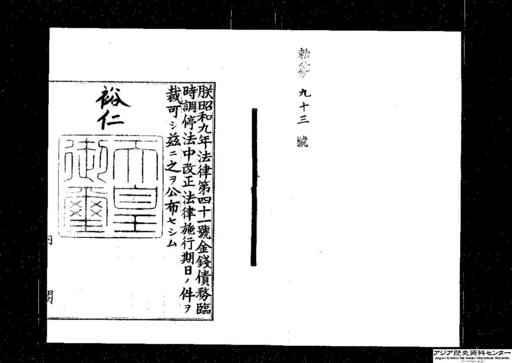 勅令 九十三 號
朕昭和九年法律第四十一號金錢債務臨
時調停法中改正法律施行期日ノ件ヲ
裁可シ茲ニ之ヲ公布セシム
裕仁
天皇
御璽
内閣
アジア歴史資料センター
Japan Center for Asian Historical Records